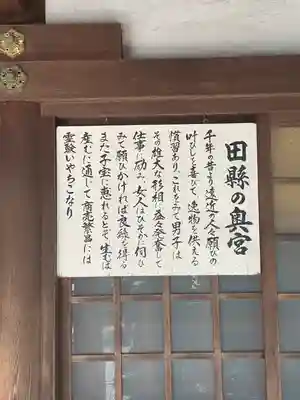 田縣の奥宮
千年の昔より遠近の人々願ひの
叶ひしを喜びて逸物を供える
慣習あり、これをみて男子は
その雄大な形相に益々発奮して
仕事に励み、女人はひそかに伺ひ
みて願ひかければ良縁を得る
また子宝に恵れるとぞ、生むは
産むに通じて商売繁昌には
霊験いやちこなり